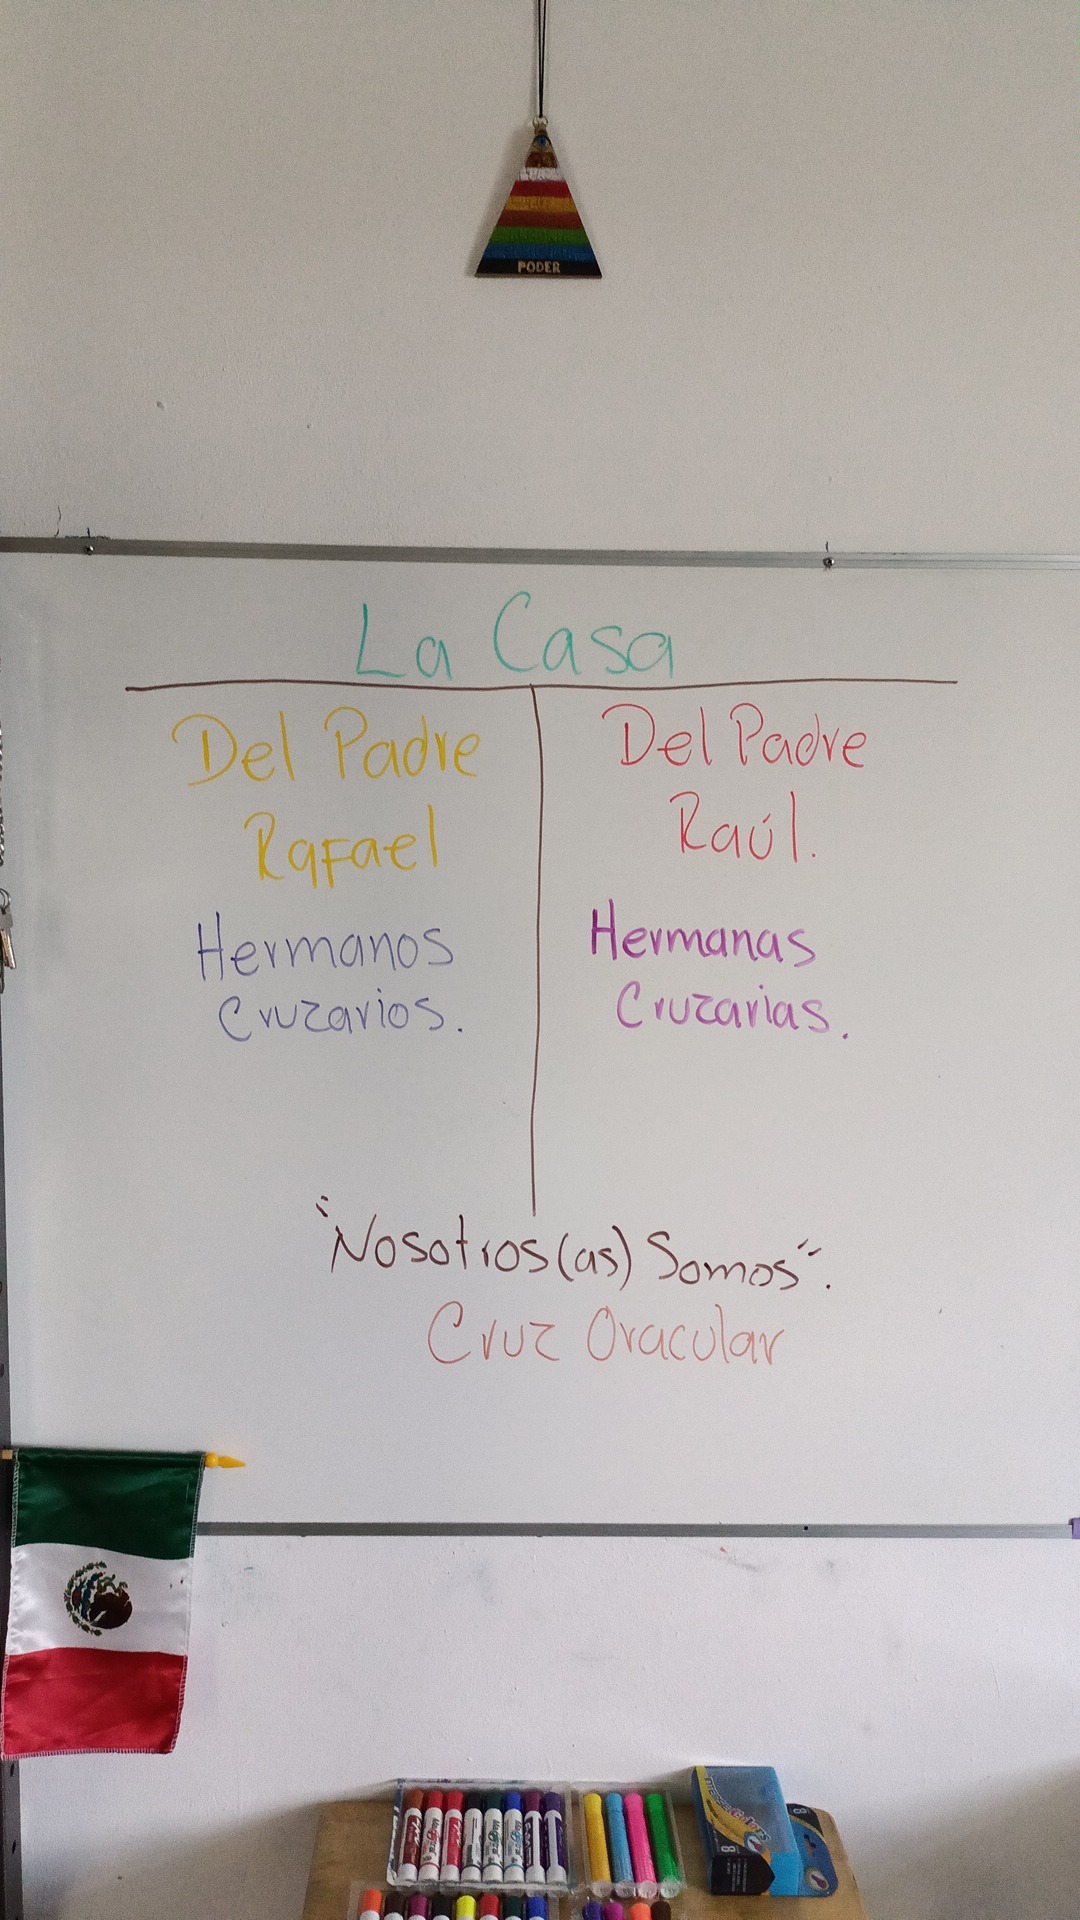 PODER
La Casa
Del Padre
Rafael
Hermanos
Cruzarios.
Del Padre
Raúl.
Hermanas
Cruzarias.
"Nosotros(as) Somos".
Cruz Oracular